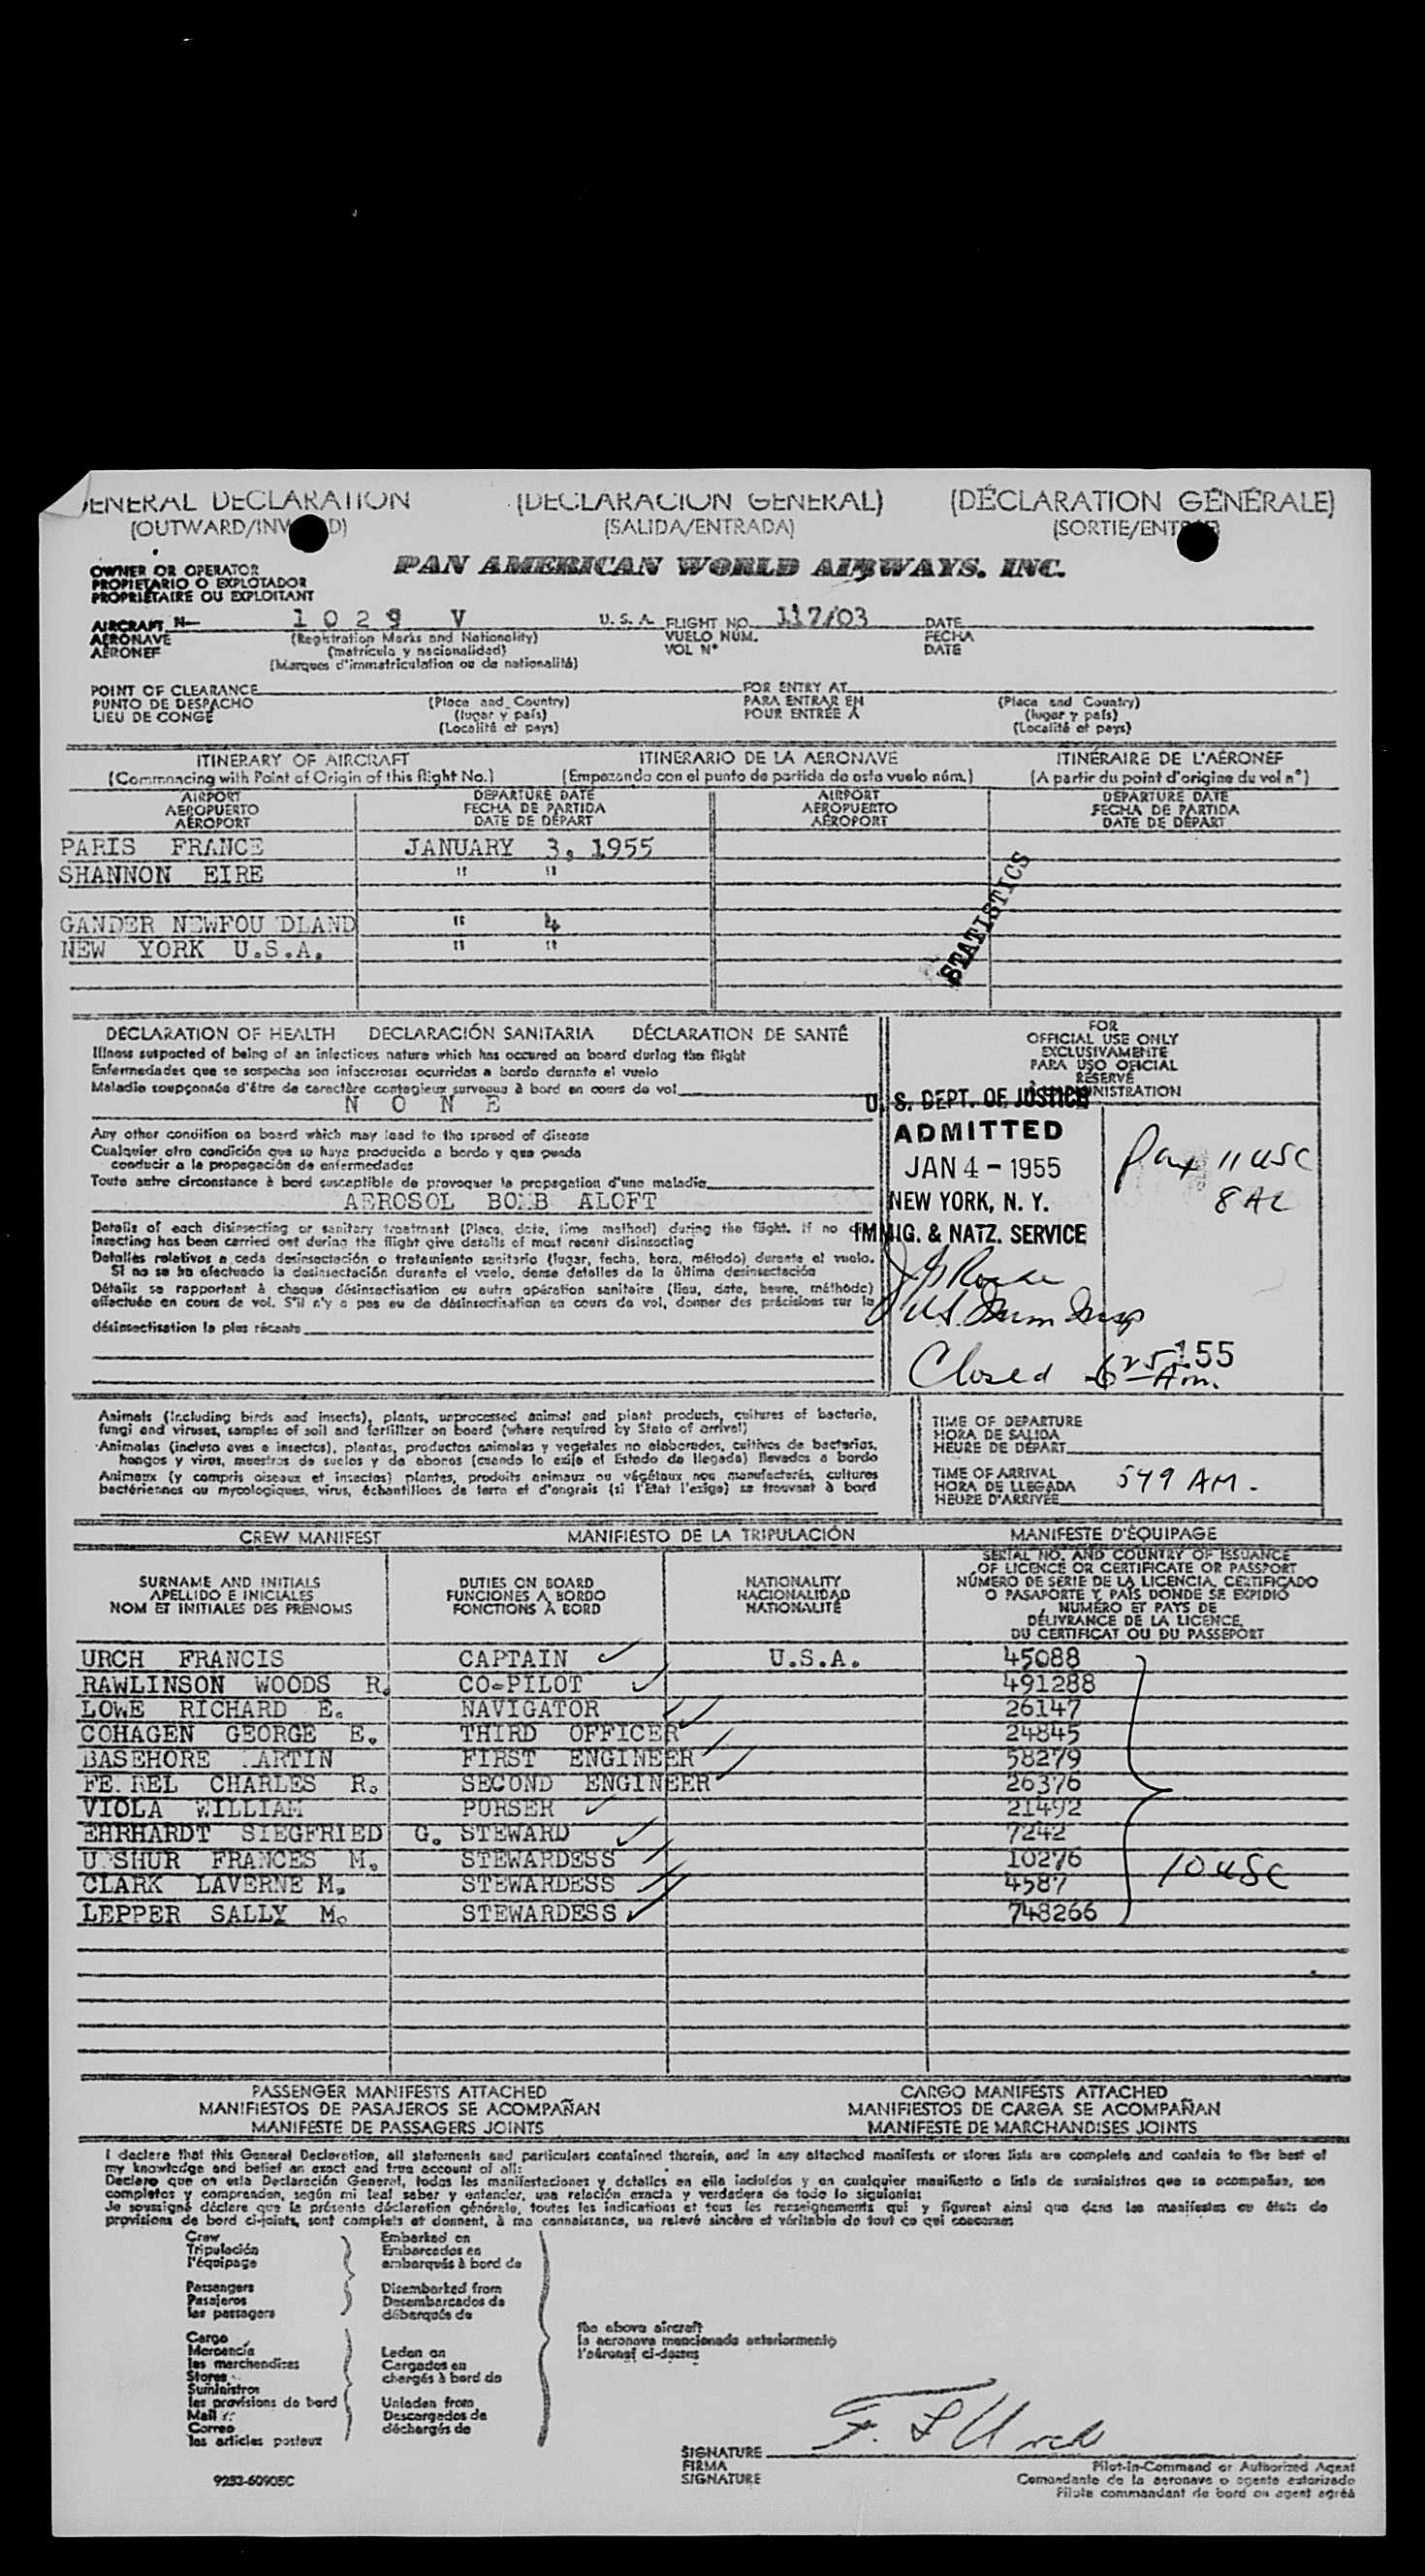 GENERAL DECLARATION (DECLARACIÓN GENERAL) (DÉCLARATION GÉNÉRALE)
(OUTWARD/INW D) (SALIDA/ENTRADA) (SORTIE/ENT
OWNER OR OPERATOR PAN AMERICAN WORLD AIRWAYS, INC.
PROPIETARIO O EXPLOTADOR
PROPRIÉTAIRE OU EXPLOITANT
AIRCRAFT N— 1029 V U.S.A. FLIGHT NO. 117/03 DATE
AERONAVE (Registration Marks and Nationality) VUELO NÚM. FECHA
AÉRONEF (matrícula y nacionalidad) VOL N° DATE
(Marques d'immatriculation ou de nationalité)
POINT OF CLEARANCE FOR ENTRY AT
PUNTO DE DESPACHO (Place and Country) PARA ENTRAR EN (Place and Country)
LIEU DE CONGÉ (lugar y país) POUR ENTRÉE À (lugar y país)
(Localité et pays) (Localité et pays)
ITINERARY OF AIRCRAFT ITINERARIO DE LA AERONAVE ITINÉRAIRE DE L'AÉRONEF
(Commencing with Point of Origin of this flight No.) (Empezando con el punto de partida de este vuelo núm.) (A partir du point d'origine du vol n°)
AIRPORT DEPARTURE DATE AIRPORT DEPARTURE DATE
AEROPUERTO FECHA DE PARTIDA AEROPUERTO FECHA DE PARTIDA
AÉROPORT DATE DE DÉPART AÉROPORT DATE DE DÉPART
PARIS FRANCE JANUARY 3, 1955
SHANNON EIRE " "
GANDER NEWFOU DLAND " 4
NEW YORK U.S.A. " "
STATISTICS
DECLARATION OF HEALTH DECLARACIÓN SANITARIA DÉCLARATION DE SANTÉ
Illness suspected of being of an infectious nature which has occured on board during the flight
Enfermedades que se sospecha son infecciosas ocurridas a bordo durante el vuelo
Maladie soupçonnée d'être de caractère contagieux survenue à bord en cours de vol
N O N E
Any other condition on board which may lead to the spread of disease
Cualquier otra condición que se haya producido a bordo y que pueda
conducir a la propagación de enfermedades
Toute autre circonstance à bord susceptible de provoquer la propagation d'une maladie
AEROSOL BOMB ALOFT
Details of each disinsecting or sanitary treatment (Place, date, time method) during the flight. If no
insecting has been carried out during the flight give details of most recent disinsecting
Detalles relativos a cada desinsectación o tratamiento sanitario (lugar, fecha, hora, método) durante el vuelo.
Si no se ha efectuado la desinsectación durante el vuelo, dense detalles de la última desinsectación
Détails se rapportant à chaque désinsectisation ou autre opération sanitaire (lieu, date, heure, méthode)
effectuée en cours de vol. S'il n'y a pas eu de désinsectisation en cours de vol, donner des précisions sur la
désinsectisation la plus récente
FOR
OFFICIAL USE ONLY
EXCLUSIVAMENTE
PARA USO OFICIAL
RÉSERVÉ
U. S. DEPT. OF JUSTICE
ADMITTED
JAN 4 - 1955
NEW YORK, N. Y.
IMMIG. & NATZ. SERVICE
Pax 11 USC
8 AL
Closed 6 25 Am.
155
Animals (including birds and insects), plants, unprocessed animal and plant products, cultures of bacteria,
fungi and viruses, samples of soil and fertilizer on board (where required by State of arrival)
Animales (incluso aves e insectos), plantas, productos animales y vegetales no elaborados, cultivos de bacterias,
hongos y virus, muestras de suelos y de abonos (cuando lo exija el Estado de llegada) llevados a bordo
Animaux (y compris oiseaux et insectes) plantes, produits animaux ou végétaux non manufacturés, cultures
bactériennes ou mycologiques, virus, échantillons de terre et d'engrais (si l'Etat l'exige) se trouvant à bord
TIME OF DEPARTURE
HORA DE SALIDA
HEURE DE DÉPART
TIME OF ARRIVAL
HORA DE LLEGADA 549 AM.
HEURE D'ARRIVÉE
CREW MANIFEST MANIFIESTO DE LA TRIPULACIÓN MANIFESTE D'ÉQUIPAGE
SURNAME AND INITIALS DUTIES ON BOARD NATIONALITY
APELLIDO E INICIALES FUNCIONES A BORDO NACIONALIDAD
NOM ET INITIALES DES PRÉNOMS FONCTIONS À BORD NATIONALITÉ
SERIAL NO. AND COUNTRY OF ISSUANCE
OF LICENCE OR CERTIFICATE OR PASSPORT
NÚMERO DE SERIE DE LA LICENCIA, CERTIFICADO
O PASAPORTE Y PAÍS DONDE SE EXPIDIÓ
NUMÉRO ET PAYS DE
DÉLIVRANCE DE LA LICENCE,
DU CERTIFICAT OU DU PASSEPORT
URCH FRANCIS CAPTAIN U.S.A. 45088
RAWLINSON WOODS R. CO-PILOT 491288
LOWE RICHARD E. NAVIGATOR 26147
COHAGEN GEORGE E. THIRD OFFICER 24845
BASEHORE ARTIN FIRST ENGINEER 58279
FE REL CHARLES R. SECOND ENGINEER 26376
VIOLA WILLIAM PURSER 21492
EHRHARDT SIEGFRIED G. STEWARD 7242
U SHUR FRANCES M. STEWARDESS 10276
CLARK LAVERNE M. STEWARDESS 4587
LEPPER SALLY M. STEWARDESS 748266
10 USC
PASSENGER MANIFESTS ATTACHED CARGO MANIFESTS ATTACHED
MANIFIESTOS DE PASAJEROS SE ACOMPAÑAN MANIFIESTOS DE CARGA SE ACOMPAÑAN
MANIFESTE DE PASSAGERS JOINTS MANIFESTE DE MARCHANDISES JOINTS
I declare that this General Declaration, all statements and particulars contained therein, and in any attached manifests or stores lists are complete and contain to the best of
my knowledge and belief an exact and true account of all:
Declaro que en esta Declaración General, todas las manifestaciones y detalles en ella incluidos y en cualquier manifiesto o lista de suministros que se acompañan, son
completos y comprenden, según mi leal saber y entender, una relación exacta y verdadera de todo lo siguiente:
Je soussigné déclare que la présente déclaration générale, toutes les indications et tous les renseignements qui y figurent ainsi que dans les manifestes ou états de
provisions de bord ci-joints, sont complets et donnent, à ma connaissance, un relevé sincère et véritable de tout ce qui concerne:
Crew Embarked on
Tripulación Embarcados en
l'équipage embarqués à bord de
Passengers Disembarked from
Pasajeros Desembarcados de
les passagers débarqués de
the above aircraft
la aeronave mencionada anteriormente
l'aéronef ci-dessus
Cargo
Mercancía Laden on
les marchandises Cargados en
Stores chargés à bord de
Suministros
les provisions de bord Unladen from
Mail Descargados de
Correo déchargés de
les articles postaux
F. S Urch
SIGNATURE
FIRMA Pilot-in-Command or Authorized Agent
SIGNATURE Comandante de la aeronave o agente autorizado
Pilote commandant de bord ou agent agréé
9253-60905C